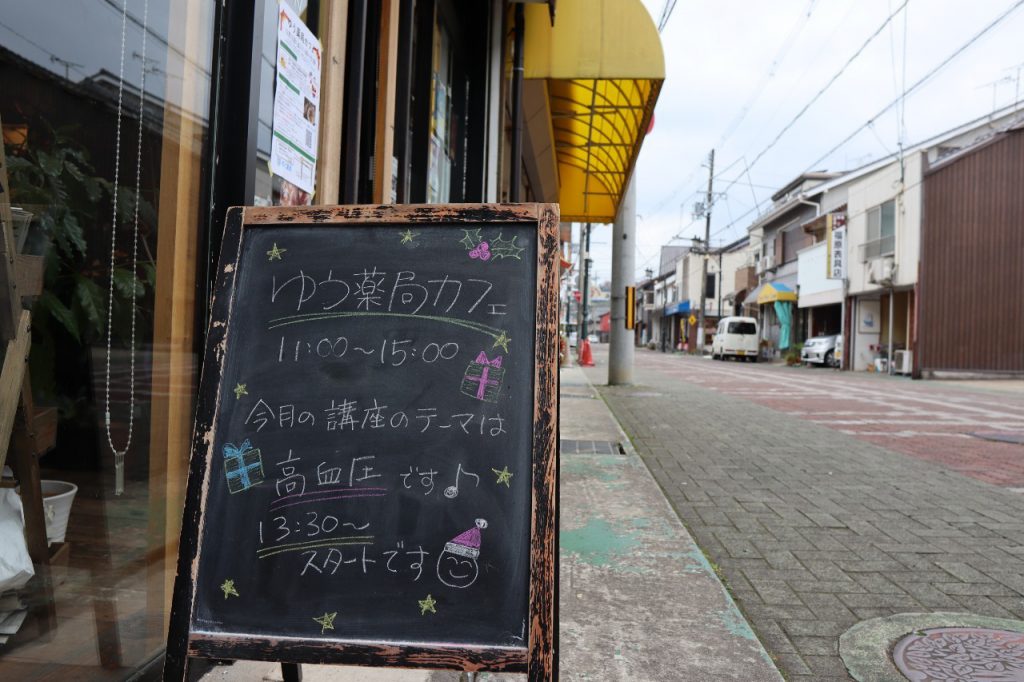 ゆう薬局カフェ
11:00～15:00
今月の講座のテーマは
高血圧です♪
13:30～
スタートです